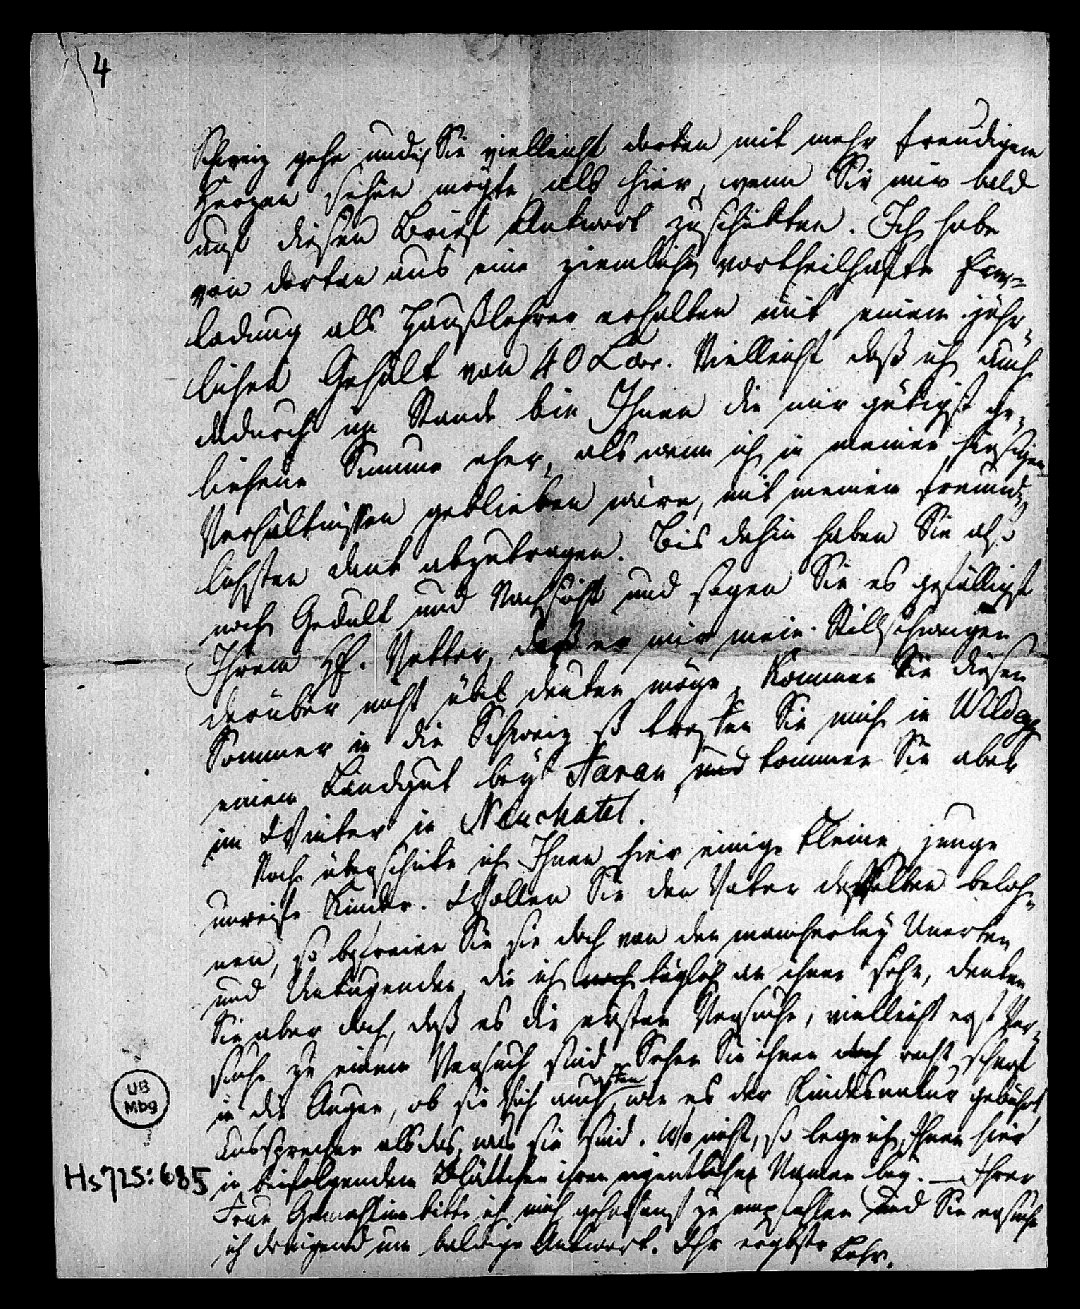 4
Schweiz gehe und ich Sie vielleicht dorten mit mehr freudigem
Herzen sehen mögte als hier, wenn Sie mir bald
auf diesen Brief Antwort zuschikten. Ich habe
von dorten aus eine ziemlich vortheilhafte Ein-
ladung als Haußlehrer erhalten mit einem jähr-
lichen Gehalt von 40 Lou. Vielleicht daß ich auch
dadurch im Stande bin Ihnen die mir gütigst ge-
liehene Summe eher, als wenn ich in meinen hiesigen
Verhältnissen geblieben wäre, mit meinem freund-
lichsten dank abzutragen. Bis dahin haben Sie also
noch Gedult und Nachsicht und sagen Sie es gefälligst
Ihrem H. Vetter, daß er mir mein Stillschweigen
darüber nicht übel deuten möge. Kommen Sie diesen
Sommer in die Schweiz so treffen Sie mich in Wildegg
einem Landgut bey Aarau und kommen Sie aber
im Winter in Neuchatel.
Noch überschicke ich Ihnen hier einige kleine, junge
unreife Kinder. Wollen Sie den Vater derselben beloh-
nen, so befreien Sie sie doch von den mancherley Unarten
und Untugenden die ich noch täglich an ihnen sehe, denken
Sie aber doch, daß es die ersten Versuche, vielleicht erst Ver-
suche zu einem Versuch sind. Sehen Sie ihnen doch recht scharf
in die Augen, ob sie sich auch wie es der Kindesnatur gebührt
aussprechen als das, was sie sind. Wo nicht, so lege ich Ihnen hier
in beifolgendem Blättchen ihren eigentlichen Namen bey. — Ihrer
Frau Gemahlin bitte ich mich gehorsamst zu empfehlen und Sie ersuche
ich dringend um baldige Antwort. Ihr ergebster Lehr.
UB
Mbg
Hs 725:685